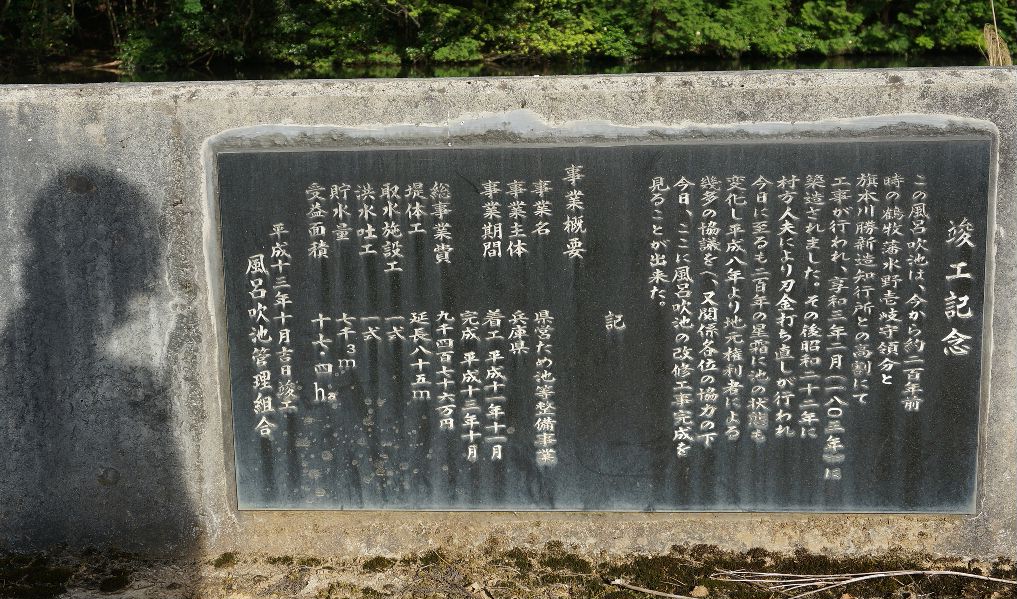 竣工記念
この風呂吹池は、今から約二百年前
時の鶴牧藩水野壱岐守領分と
旗本川勝新造知行所との高割にて
工事が行われ、享和三年二月（一八〇三年）に
築造されました。その後昭和二十二年に
村方人夫により刃金打ち直しが行われ
今日に至るも二百年の星霜に池の状態も
変化し平成八年より地元権利者による
幾多の協議をへ、又関係各位の協力の下
今日、ここに風呂吹池の改修工事完成を
見ることが出来た。
記
事業概要
事業名 県営ため池等整備事業
事業主体 兵庫県
事業期間 着工 平成十一年十一月
完成 平成十三年十月
総事業費 九千四百七十六万円
堤体工 延長八十五m
取水施設工 一式
洪水吐工 一式
貯水量 七千m³
受益面積 十七・四ha
平成十三年十月吉日竣工
風呂吹池管理組合